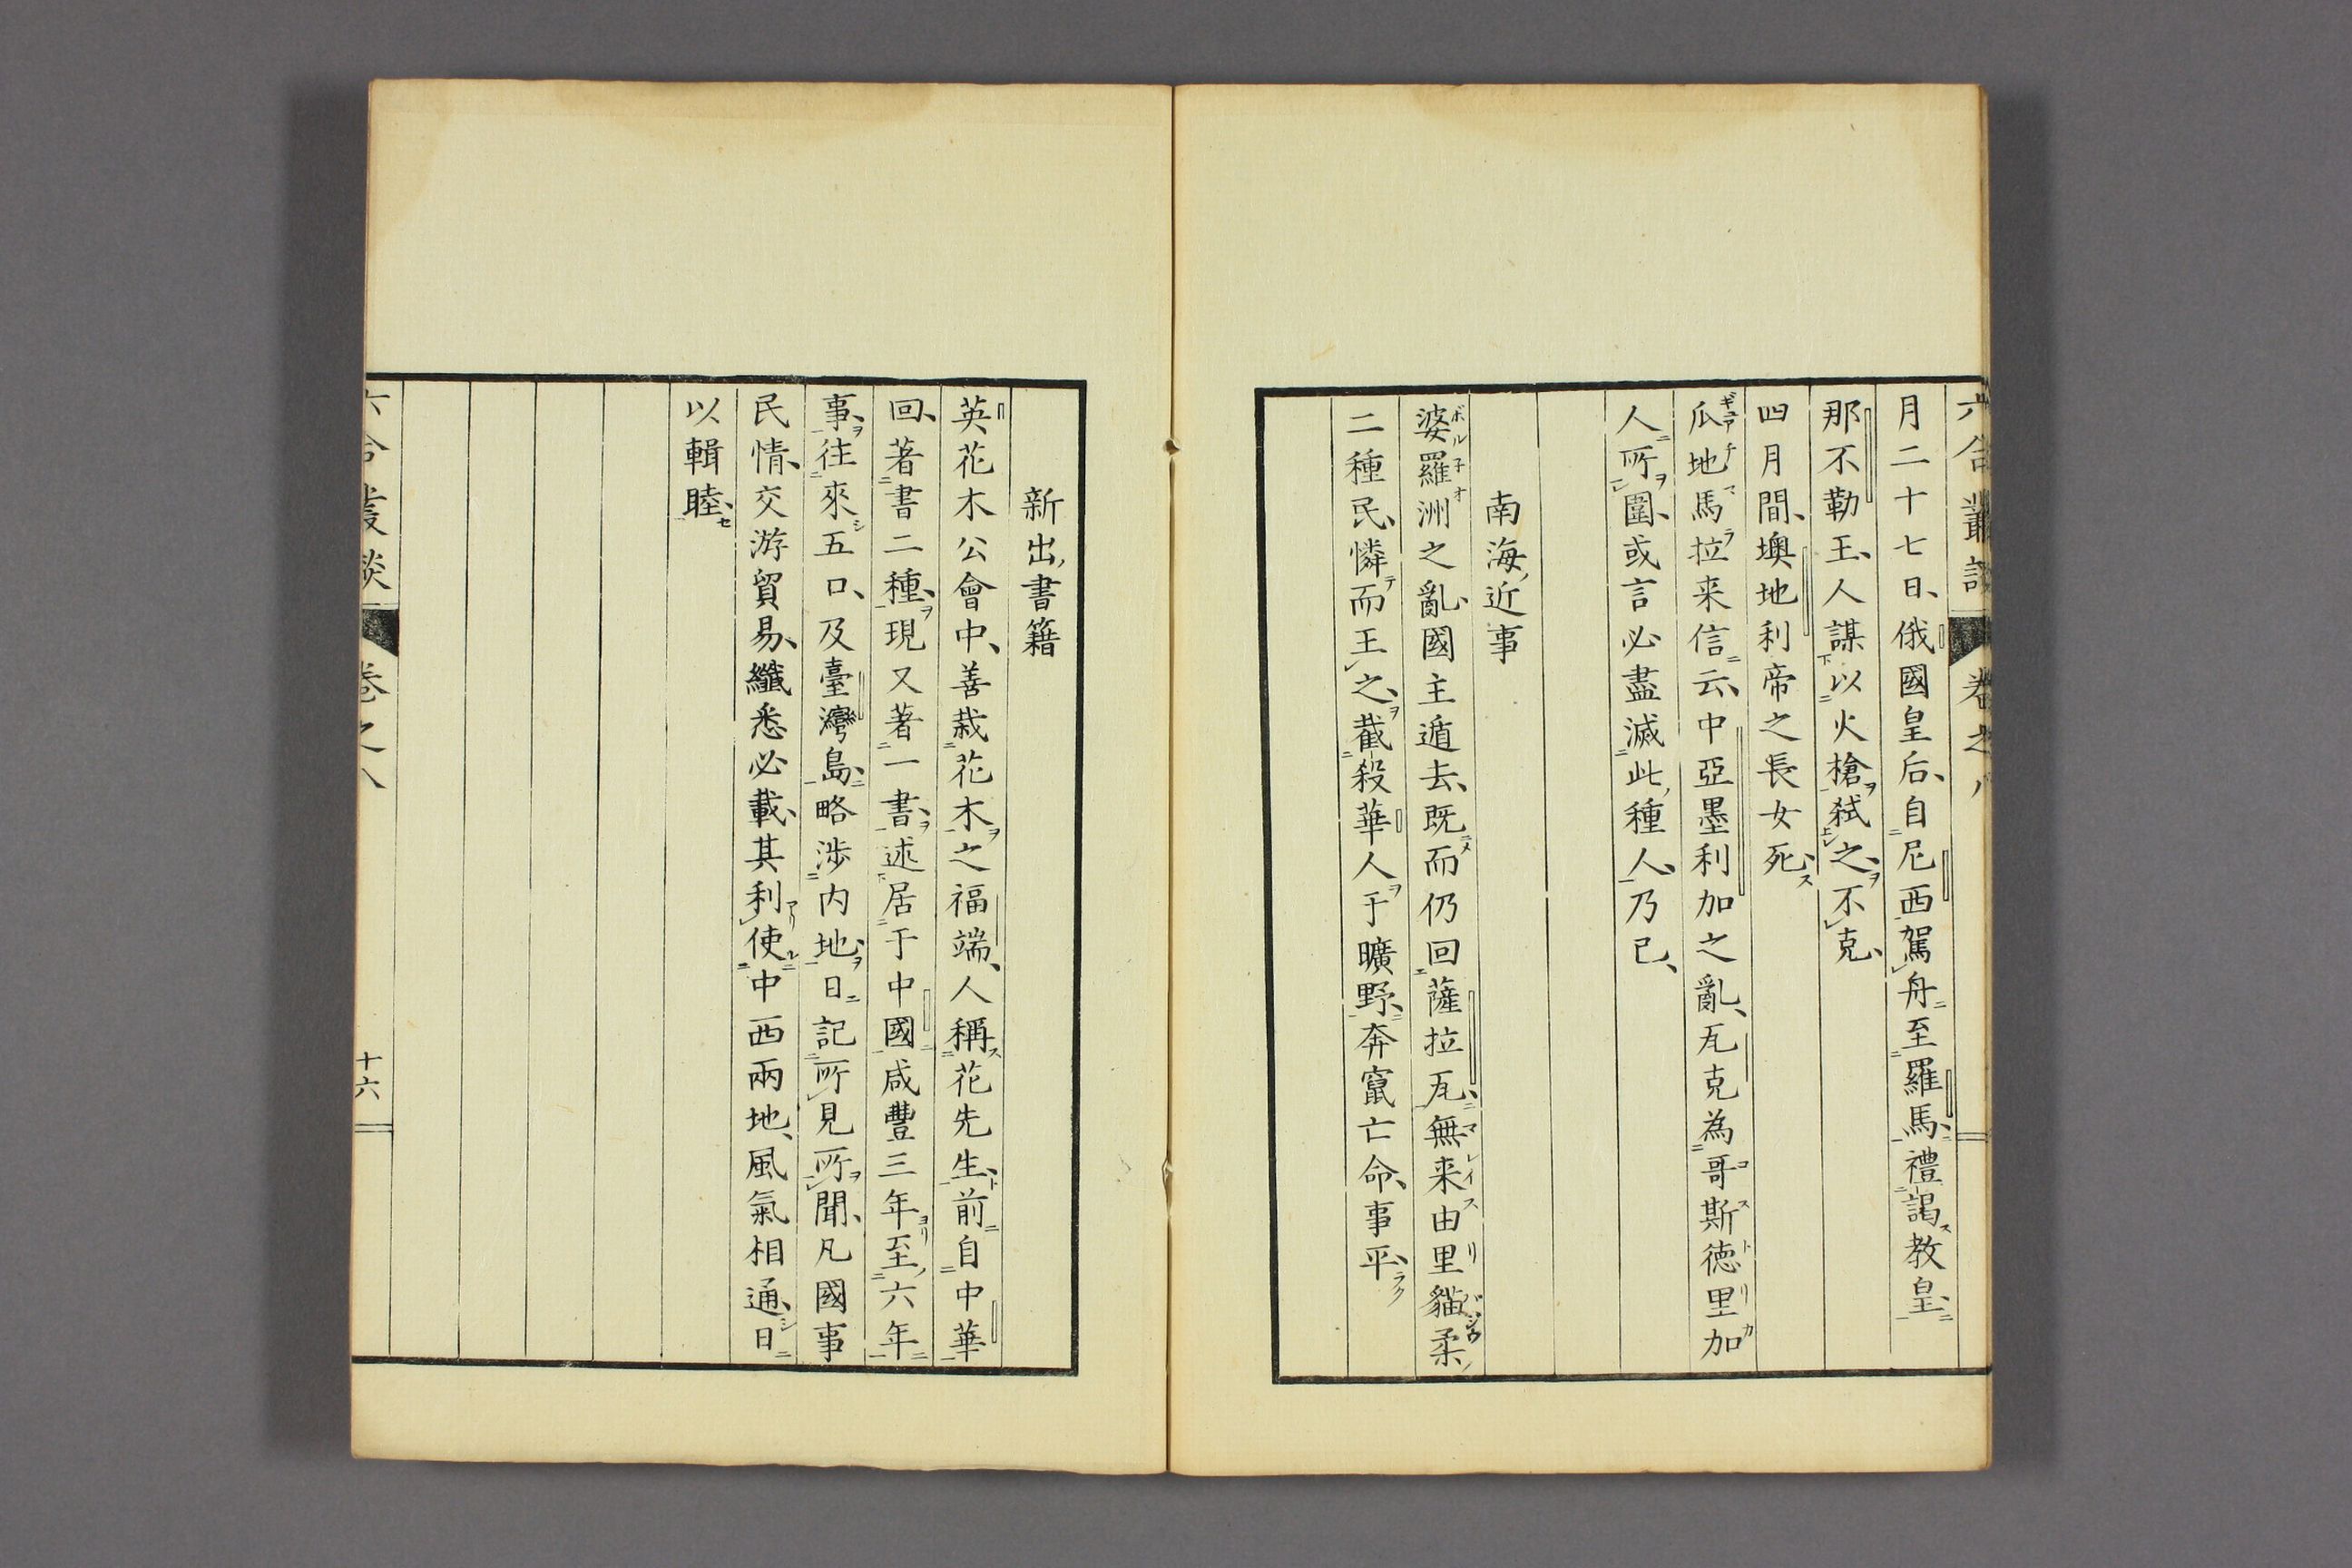 月二十七日、俄國皇后、自尼西駕舟至羅馬、禮謁教皇、
那不勒王、人謀以火槍弒之、不克、
四月間、墺地利帝之長女死、
瓜地馬拉来信云、中亞墨利加之亂、瓦克為哥斯徳里加
人所圍、或言必盡滅此種人、乃已、
南海近事
婆羅洲之亂、國主遁去、既而仍回薩拉瓦、無来由里貓柔
二種民、憐而王之、截殺華人于曠野、奔竄亡命、事平、
新出書籍
英花木公會中、善栽花木之福端、人稱花先生、前自中華
回、著書二種、現又著一書、述居于中國咸豐三年至六年
事、往來五口、及臺灣島、略渉内地、日記所見所聞、凡國事
民情、交游貿易、纖悉必載、其利使中西兩地、風氣相通、日
以輯睦、
六合叢談
卷之八
十六